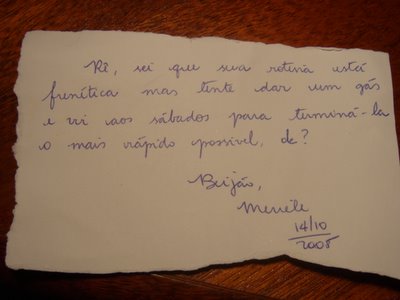 Rê, sei que sua rotina está
frenética mas tente dar um gás
e vir aos sábados para terminá-la
o mais rápido possível, ok?
Beijão,
Meriéle
14/10
2008